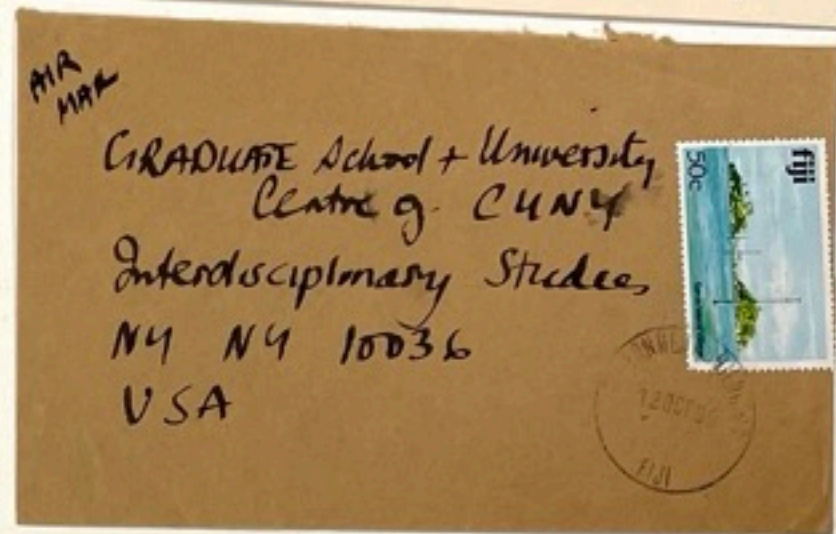 AIR
MAIL
GRADUATE School + University
Centre of CUNY
Interdisciplinary Studies
NY NY 10036
USA
fiji
50c
12 OCT
FIJI